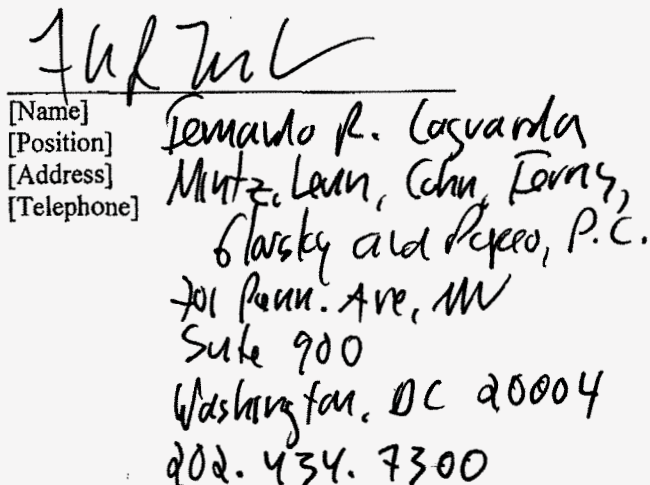 [Name]
[Position]
[Address]
[Telephone]
Fernando R. Laguarda
Mintz, Levin, Cohn, Ferris,
Glovsky and Popeo, P.C.
701 Penn. Ave, NW
Suite 900
Washington, DC 20004
202.434.7300